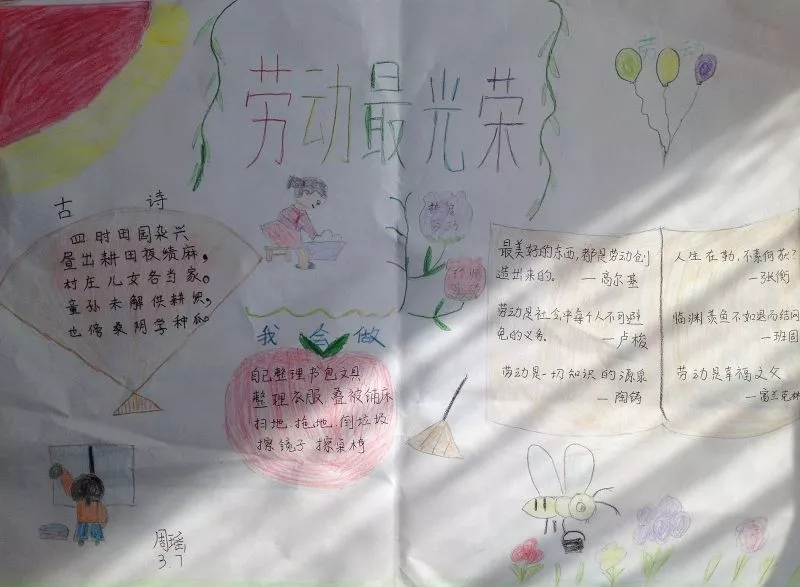 劳动最光荣
劳动
古 诗
四时田园杂兴
昼出耕田夜绩麻,
村庄儿女各当家。
童孙未解供耕织,
也傍桑阴学种瓜。
热爱
劳动
珍惜
我会做
自己整理书包文具
整理衣服 叠被铺床
扫地 拖地 倒垃圾
擦镜子 擦桌椅
最美好的东西,都是劳动创
造出来的。 —高尔基
劳动是社会中每个人不可避
免的义务。 —卢梭
劳动是一切知识的源泉
—陶铸
人生在勤,不索何获?
—张衡
临渊羡鱼不如退而结网
—班固
劳动是幸福之父
—富兰克林
周瑶
3.7